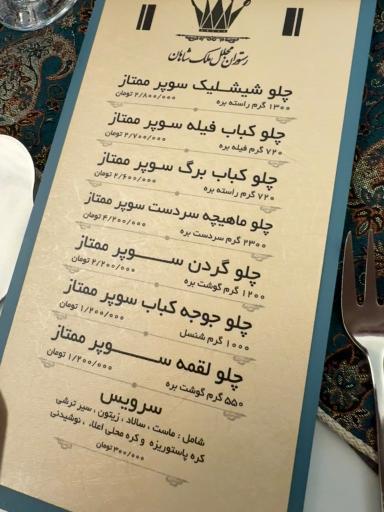 رستوران مجلل ملک شاهان
چلو شیشلیک سوپر ممتاز
۱۳۰۰ گرم راسته بره ۲/۸۰۰/۰۰۰ تومان
چلو کباب فیله سوپر ممتاز
۷۲۰ گرم فیله بره ۲/۷۰۰/۰۰۰ تومان
چلو کباب برگ سوپر ممتاز
۷۲۰ گرم راسته بره ۲/۶۰۰/۰۰۰ تومان
چلو ماهیچه سردست سوپر ممتاز
۲۳۰۰ گرم سردست بره ۴/۲۰۰/۰۰۰ تومان
چلو گردن سـوپر ممتاز
۱۲۰۰ گرم گوشت بره ۲/۲۰۰/۰۰۰ تومان
چلو جوجه کباب سوپر ممتاز
۱۰۰۰ گرم شنسل ۱/۲۰۰/۰۰۰ تومان
چلو لقمه سـوپر ممتاز
۵۵۰ گرم گوشت بره ۱/۲۰۰/۰۰۰ تومان
سرویس
شامل : ماست ، سالاد ، زیتون ، سیر ترشی
کره پاستوریزه و کره محلی اعلاء ، نوشیدنی
۳۰۰/۰۰۰ تومان